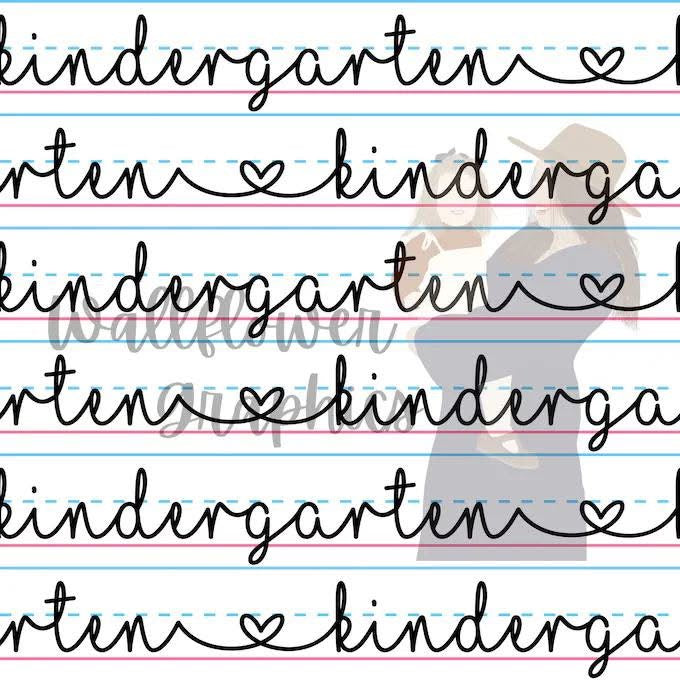 kindergarten
rten kinderga
kindergarten
Wallflower
rten kinderga
Graphics
kindergarten
rten kinderga